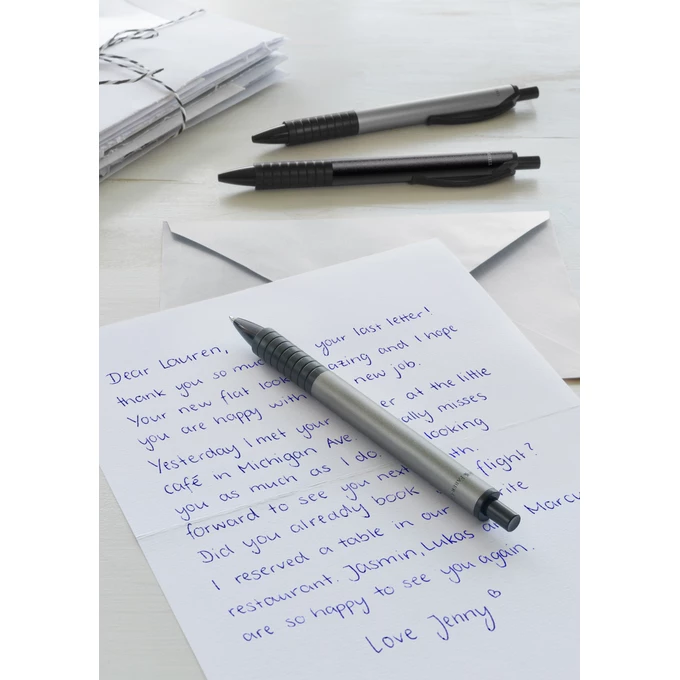 Dear Lauren,
thank you so muc your last letter!
Your new flat look azing and I hope
you are happy with new job.
Yesterday I met your er at the little
café in Michigan Ave. ally misses
you as much as I do. looking
forward to see you next th.
Did you already book flight?
I reserved a table in our rite
restaurant. Jasmin, Lukas an Marcu
are so happy to see you again.
Love Jenny